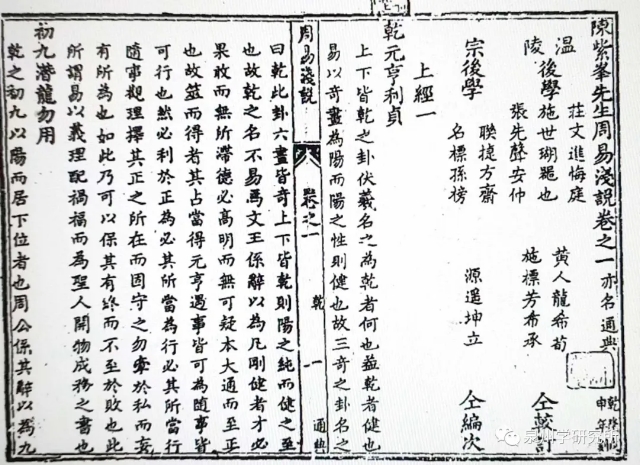 陳紫峯先生周易淺説卷之一 亦名通典
乾隆
申年
莊文進悔庭 黃人龍希荀
溫陵後學施世瑚噩也 施標芳希承 仝較訂
張先聲安仲
聯捷方齋 源遥坤立
宗後學 仝編次
名標孫榜
上經一
乾元亨利貞
上下皆乾之卦伏羲名之為乾者何也蓋乾者健也
易以奇畫為陽而陽之性則健也故三奇之卦名之
周易淺説 卷之一 乾 一 通典
曰乾此卦六畫皆奇上下皆乾則陽之純而健之至
也故乾之名不易焉文王係辭以為凡剛健者才必
果敢而無所滯德必高明而無可疑本大通而至正
也故筮而得者其占當得元亨遇事皆可為隨事皆
可行也然必利於正為必其所當為行必其所當行
隨事觀理擇其正之所在而固守之勿牽於私而妄
有所為也如此乃可以保其有終而不至於敗也此
所謂易以義理配禍福而為聖人開物成務之書也
初九潛龍勿用
乾之初九以陽而居下位者也周公係其辭以為九
泉州学研究所